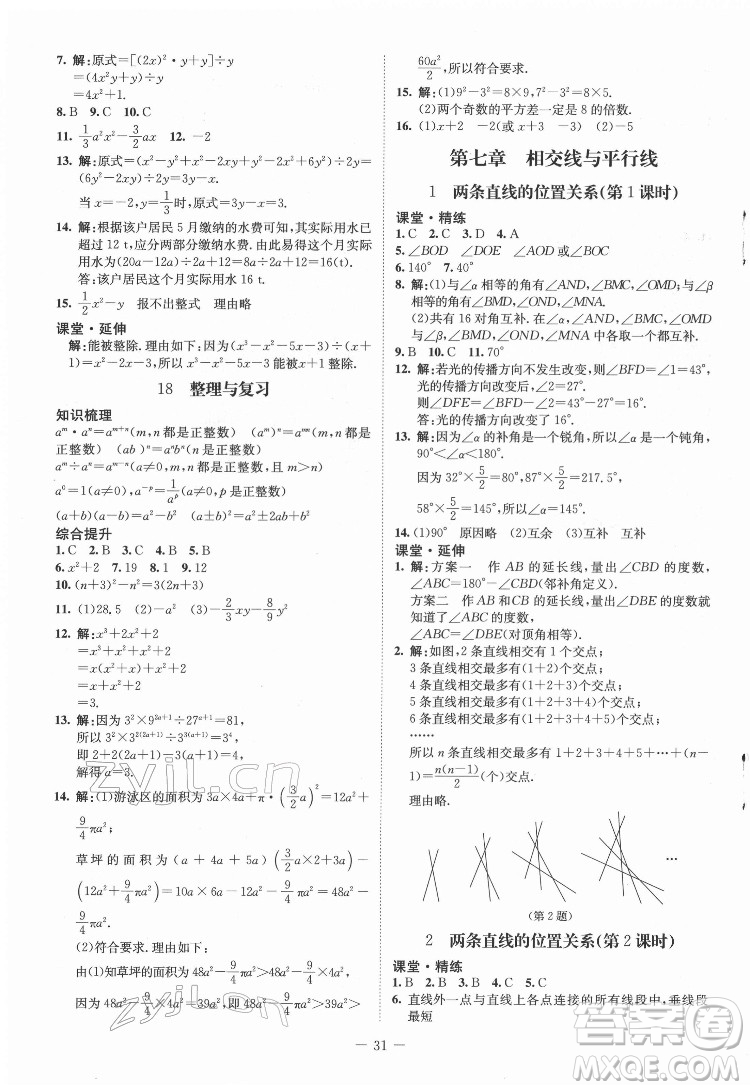 7. 解:原式=[(2x)²·y+y]÷y
=(4x²y+y)÷y
=4x²+1.
8. B 9. C 10. C
11. 1/3 a²x²-3/2 ax 12. -2
13. 解:原式=(x³-x²y-2x²y+2xy²+2x²y-2xy²)÷
(6x²)=(x³-x²y)÷(6x²)=1/6 x-1/6 y.
14. 解:根据该户居民5月缴纳的水费可知,其实际用水
量超过12 t,应分两部分缴纳水费.由题意,得实际
用水为(20a-12a)÷(2a)+12=16(t).
答:该户居民这个月实际用水16 t.
15. 1/2 x²-y 报不出整式 理由略
课堂·延伸
解:能被整除.理由如下:因为(x³-x²-5x-3)÷(x-3)=
x²+2x+1,所以x³-x²-5x-3能被x-3整除.
18 整理与复习
知识梳理
aᵐ·aⁿ=aᵐ⁺ⁿ(m,n都是正整数) (aᵐ)ⁿ=aᵐⁿ(m,n都是
正整数) (ab)ⁿ=aⁿbⁿ(n是正整数)
aᵐ÷aⁿ=aᵐ⁻ⁿ(a≠0,m,n都是正整数,且m>n)
a⁰=1(a≠0),a⁻ᵖ=1/aᵖ(a≠0,p是正整数)
(a+b)(a-b)=a²-b² (a±b)²=a²±2ab+b²
综合提升
1. C 2. B 3. C 4. B 5. B
6. x²+2 7. 19 8. 1 9. 12
10. (n+3)²-n²=3(2n+3)
11. (1)28.5 (2)-a² (3)-2/3 xy-8/9 y²
12. 解:x³+2x²+2
=x³+x²+x²+2
=x+x²+2
=1+2
=3.
13. 解:因为3²×9²ᵃ⁺¹÷27ᵃ⁺¹=81,
所以3²×3²⁽²ᵃ⁺¹⁾÷3³⁽ᵃ⁺¹⁾=3⁴,
即2+2(2a+1)-3(a+1)=4.
解得a=3.
14. 解:(1)游泳区的面积为3a×4a+π·(3/2 a)²=12a²+
9/4 πa²;
草坪的面积为(a+4a+5a)(3/2 a+3a+3/2 a)-
(12a²+9/4 πa²)=60a²-12a²-9/4 πa²=48a²-
9/4 πa².
(2)符合要求.
由(1)知草坪的面积为48a²-9/4 πa²>48a²-9/4
因为48a²-9/4 ×4a²=48a²-9a²=39a²,39a²>
60a²/2,所以符合要求.
15. 解:(1)9²-3²=8×9,7²-5²=8×3.
(2)两个奇数的平方差一定是8的倍数.
16. (1)x+2 -2(或x+3 -3) (2)-5
第七章 相交线与平行线
1 两条直线的位置关系(第1课时)
课堂·精练
1. C 2. C 3. D 4. A
5. ∠BOD ∠DOE ∠AOF或∠BOC
6. 140° 7. 40°
8. 解:(1)与∠α相等的角有∠AND,∠BMC,与∠β
相等的角有∠BMD,∠OND,∠MNA.
(2)共有16对角互补.与∠α互补的角有∠AMC,
∠BMD,∠OND,∠MNA.
9. B 10. C 11. 70°
12. 解:若光的传播方向不改变,则∠BFD=∠AFE,
光的传播方向改变了∠DFE.因为∠BFD=43°,
所以∠DFE=∠BFD-∠2=43°-27°=16°.
答:光的传播方向改变了16°.
13. 解:因为∠α的补角是一个锐角,所以∠α是一个钝角,
90°<∠α<180°.
因为32°×5/2=80°,87°×5/2=217.5°,
58°×5/2=145°,所以∠α=145°.
14. (1)90° 原因略 (2)互余 (3)互补 互补
课堂·延伸
1. 解:方案一 作AB的延长线,量出∠CBD的度数,
∠ABC=180°-∠CBD(邻补角定义).
方案二 作AB和CB的延长线,量出∠DBE的度数就
知道了∠ABC的度数,
∠ABC=∠DBE(对顶角相等).
2. 解:如图,2条直线相交有1个交点;
3条直线相交最多有(1+2)个交点;
4条直线相交最多有(1+2+3)个交点;
5条直线相交最多有(1+2+3+4)个交点;
6条直线相交最多有(1+2+3+4+5)个交点;
……
所以n条直线相交最多有1+2+3+4+5+…+(n-
1)=n(n-1)/2(个)交点.
理由略.
…
(第2题)
2 两条直线的位置关系(第2课时)
课堂·精练
1. B 2. B 3. C 4. C 5. C
6. 直线外一点与直线上各点连接的所有线段中,垂线段
最短
— 31 —
zyjl.cn
zyjl.cn
答案圈
MXQE.COM